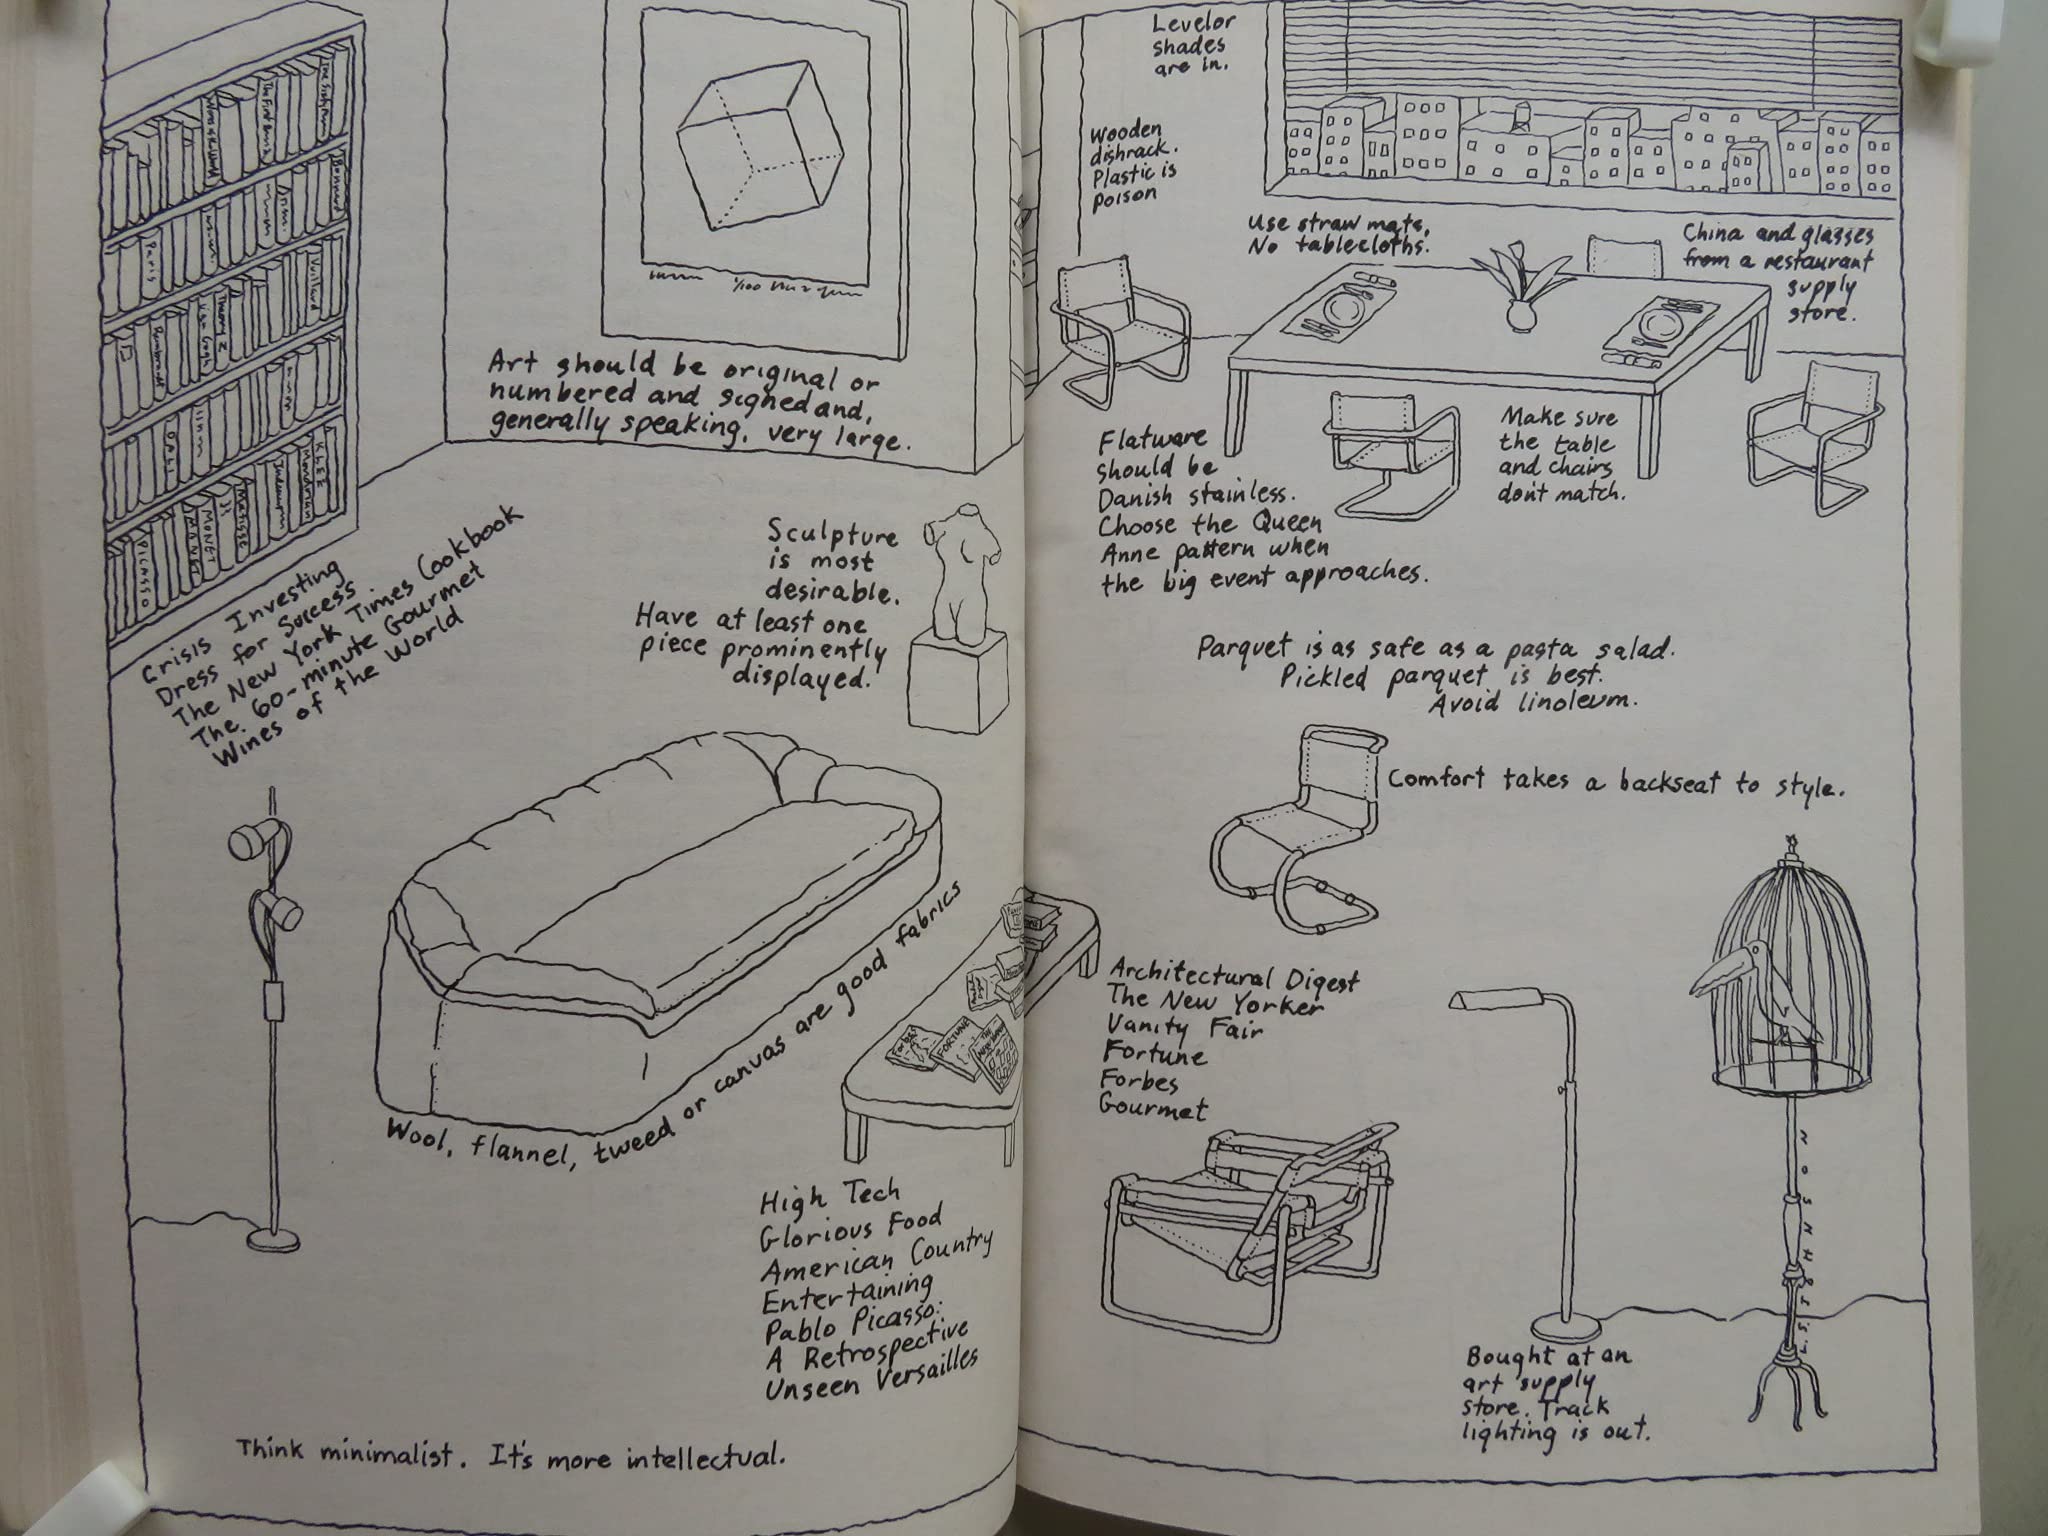 Art should be original or
numbered and signed and,
generally speaking, very large.
1/100
PARIS
Willard
Rembrandt
DALI
KLEE
Mondrian
MATISSE
MONET
MANET
PICASSO
Crisis Investing
Dress for Success
The New York Times Cookbook
The 60-minute Gourmet
Wines of the World
Sculpture
is most
desirable.
Have at least one
piece prominently
displayed.
Wool, flannel, tweed or canvas are good fabrics
FORTUNE
High Tech
Glorious Food
American Country
Entertaining
Pablo Picasso:
A Retrospective
Unseen Versailles
Think minimalist. It's more intellectual.
Levelor
shades
are in.
Wooden
dishrack.
Plastic is
poison
Use straw mats,
No tablecloths.
China and glasses
from a restaurant
supply
store.
Flatware
should be
Danish stainless.
Choose the Queen
Anne pattern when
the big event approaches.
Make sure
the table
and chairs
don't match.
Parquet is as safe as a pasta salad.
Pickled parquet is best.
Avoid linoleum.
Comfort takes a backseat to style.
Architectural Digest
The New Yorker
Vanity Fair
Fortune
Forbes
Gourmet
Bought at an
art supply
store. Track
lighting is out.